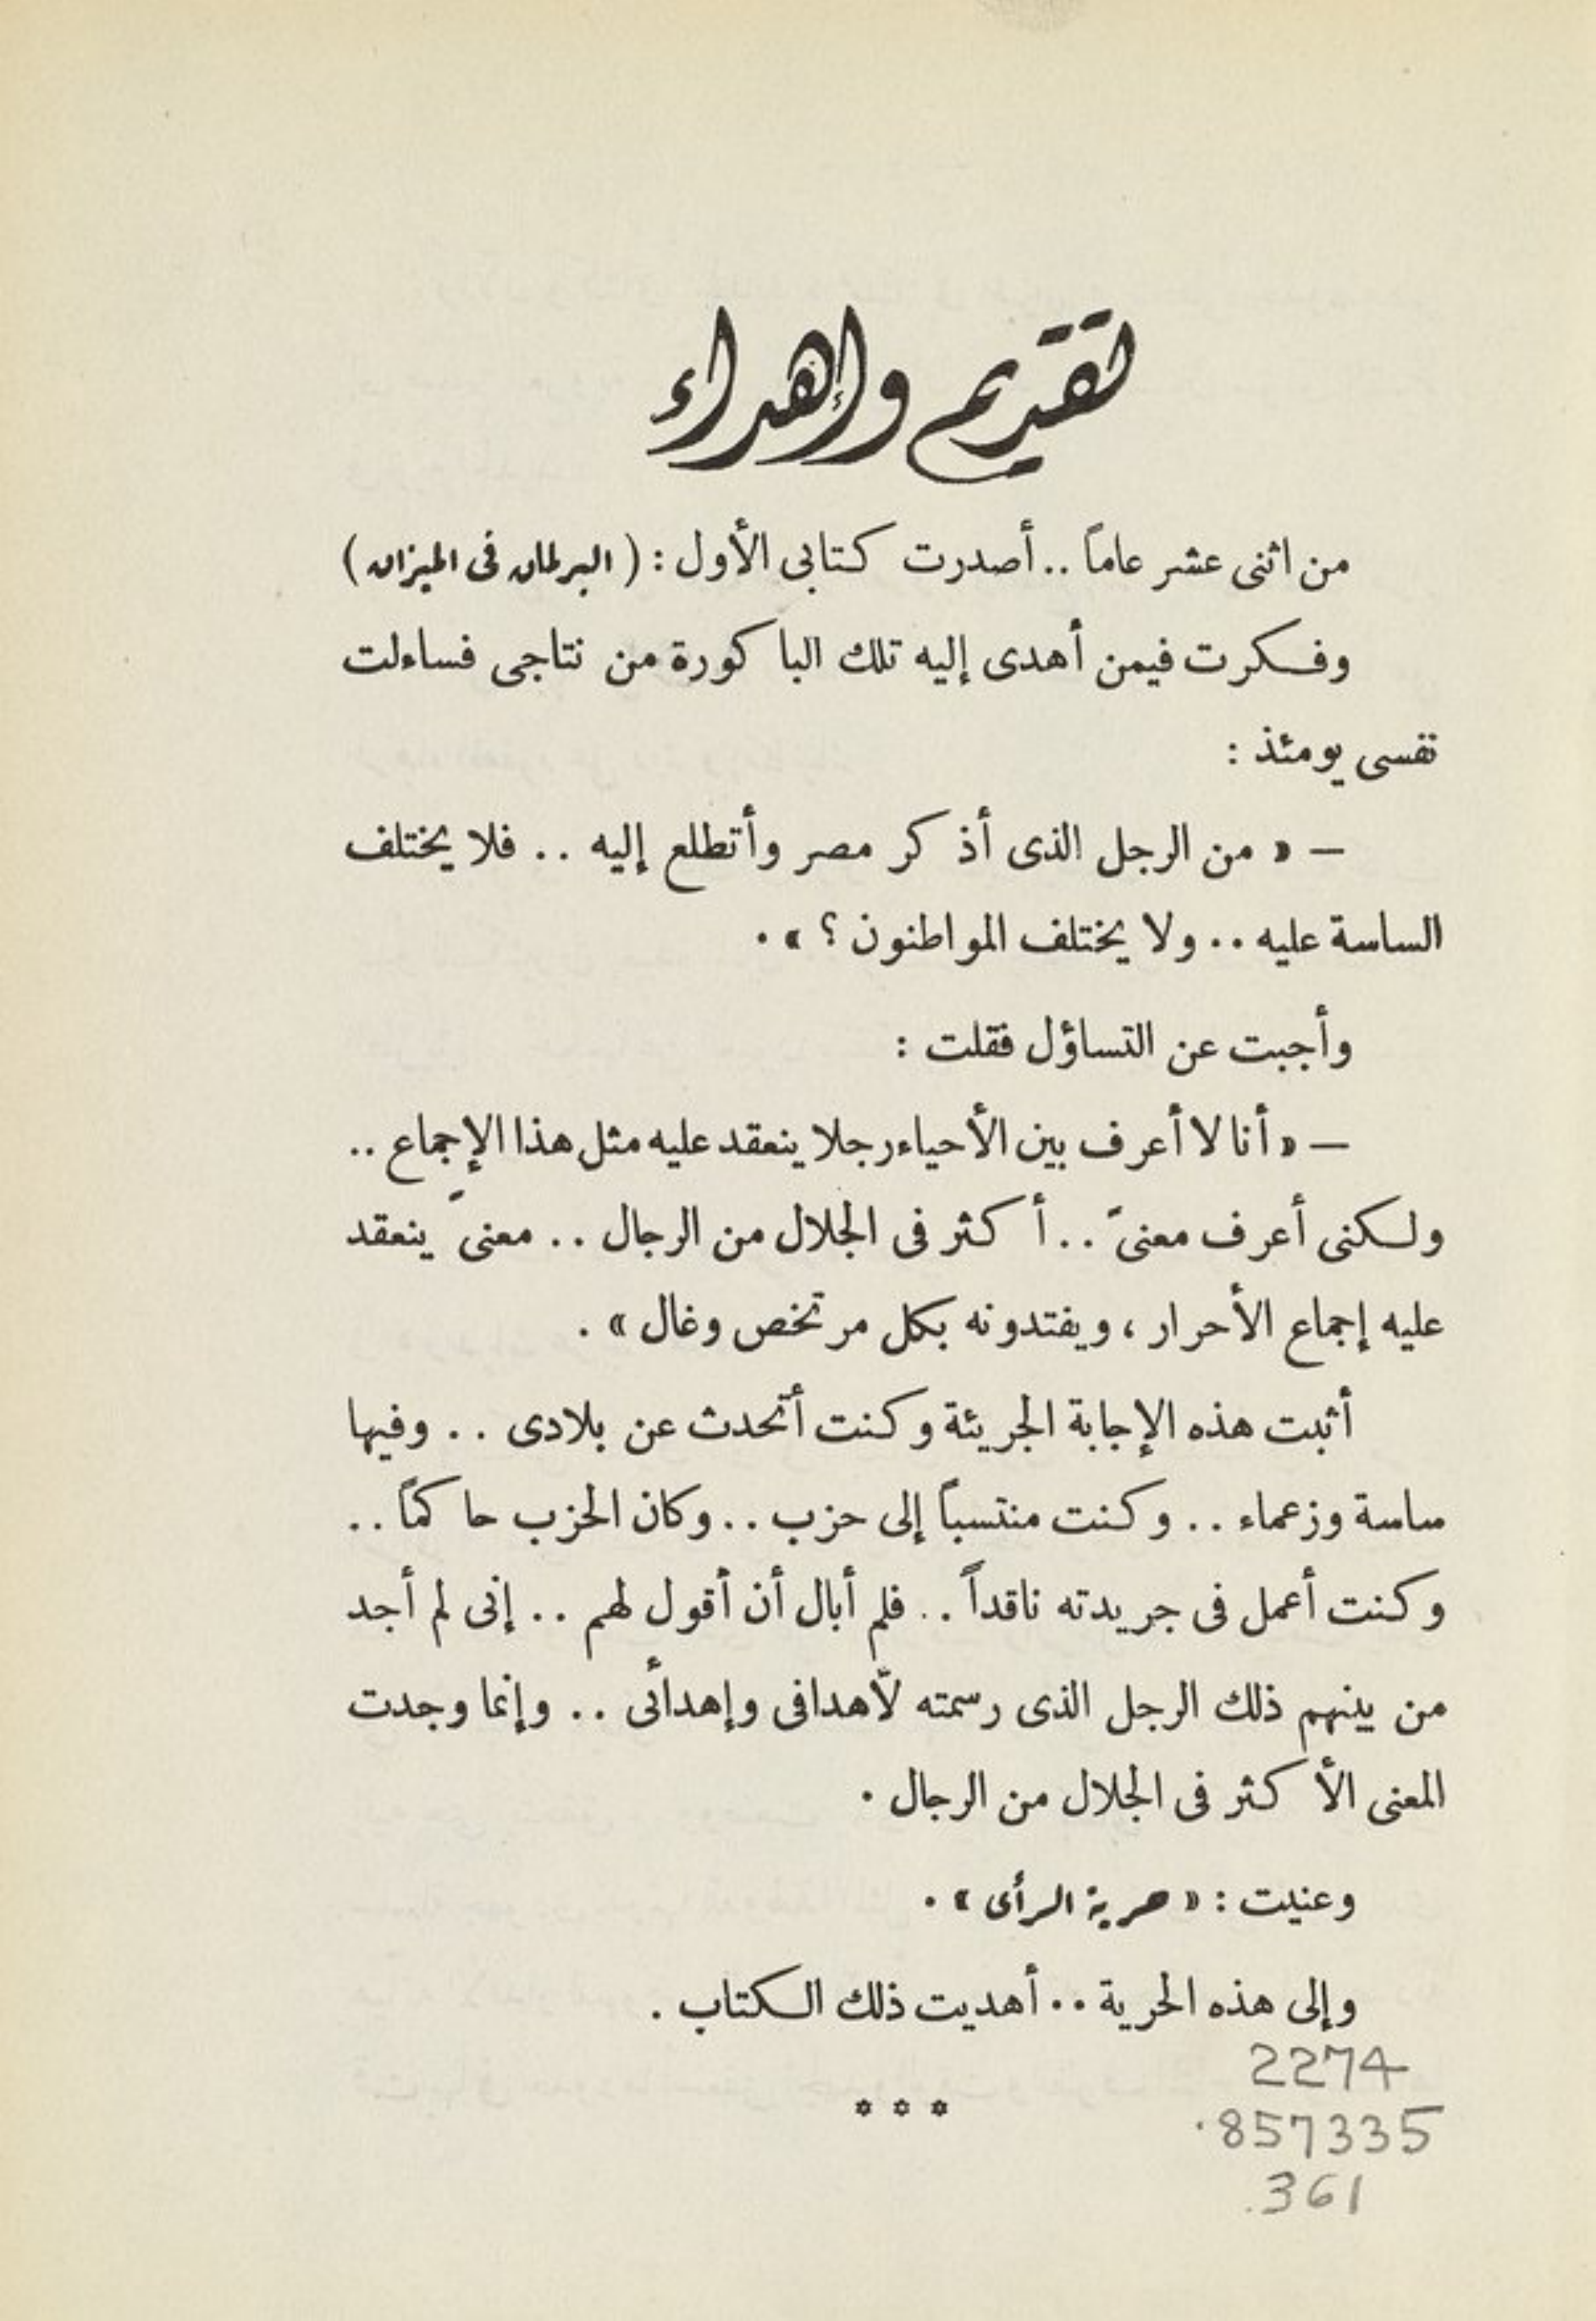 تقديم وإهداء
من اثنى عشر عاماً .. أصدرت كتابى الأول : ( البرلمان فى الميزان )
وفكرت فيمن أهدى إليه تلك الباكورة من نتاجى فساءلت
نفسى يومئذ :
— « من الرجل الذى أذكر مصر وأتطلع إليه .. فلا يختلف
الساسة عليه .. ولا يختلف المواطنون ؟ » .
وأجبت عن التساؤل فقلت :
— « أنا لا أعرف بين الأحياء رجلا ينعقد عليه مثل هذا الإجماع ..
ولكنى أعرف معنىً .. أكثر فى الجلال من الرجال .. معنىً ينعقد
عليه إجماع الأحرار ، ويفتدونه بكل مرتخص وغال » .
أثبت هذه الإجابة الجريئة وكنت أتحدث عن بلادى .. وفيها
ساسة وزعماء .. وكنت منتسباً إلى حزب .. وكان الحزب حاكماً ..
وكنت أعمل فى جريدته ناقداً .. فلم أبال أن أقول لهم .. إنى لم أجد
من بينهم ذلك الرجل الذى رسمته لأهدافى وإهدائى .. وإنما وجدت
المعنى الأكثر فى الجلال من الرجال .
وعنيت : « حرية الرأى » .
وإلى هذه الحرية .. أهديت ذلك الكتاب .
2274
.857335
.361
* * *